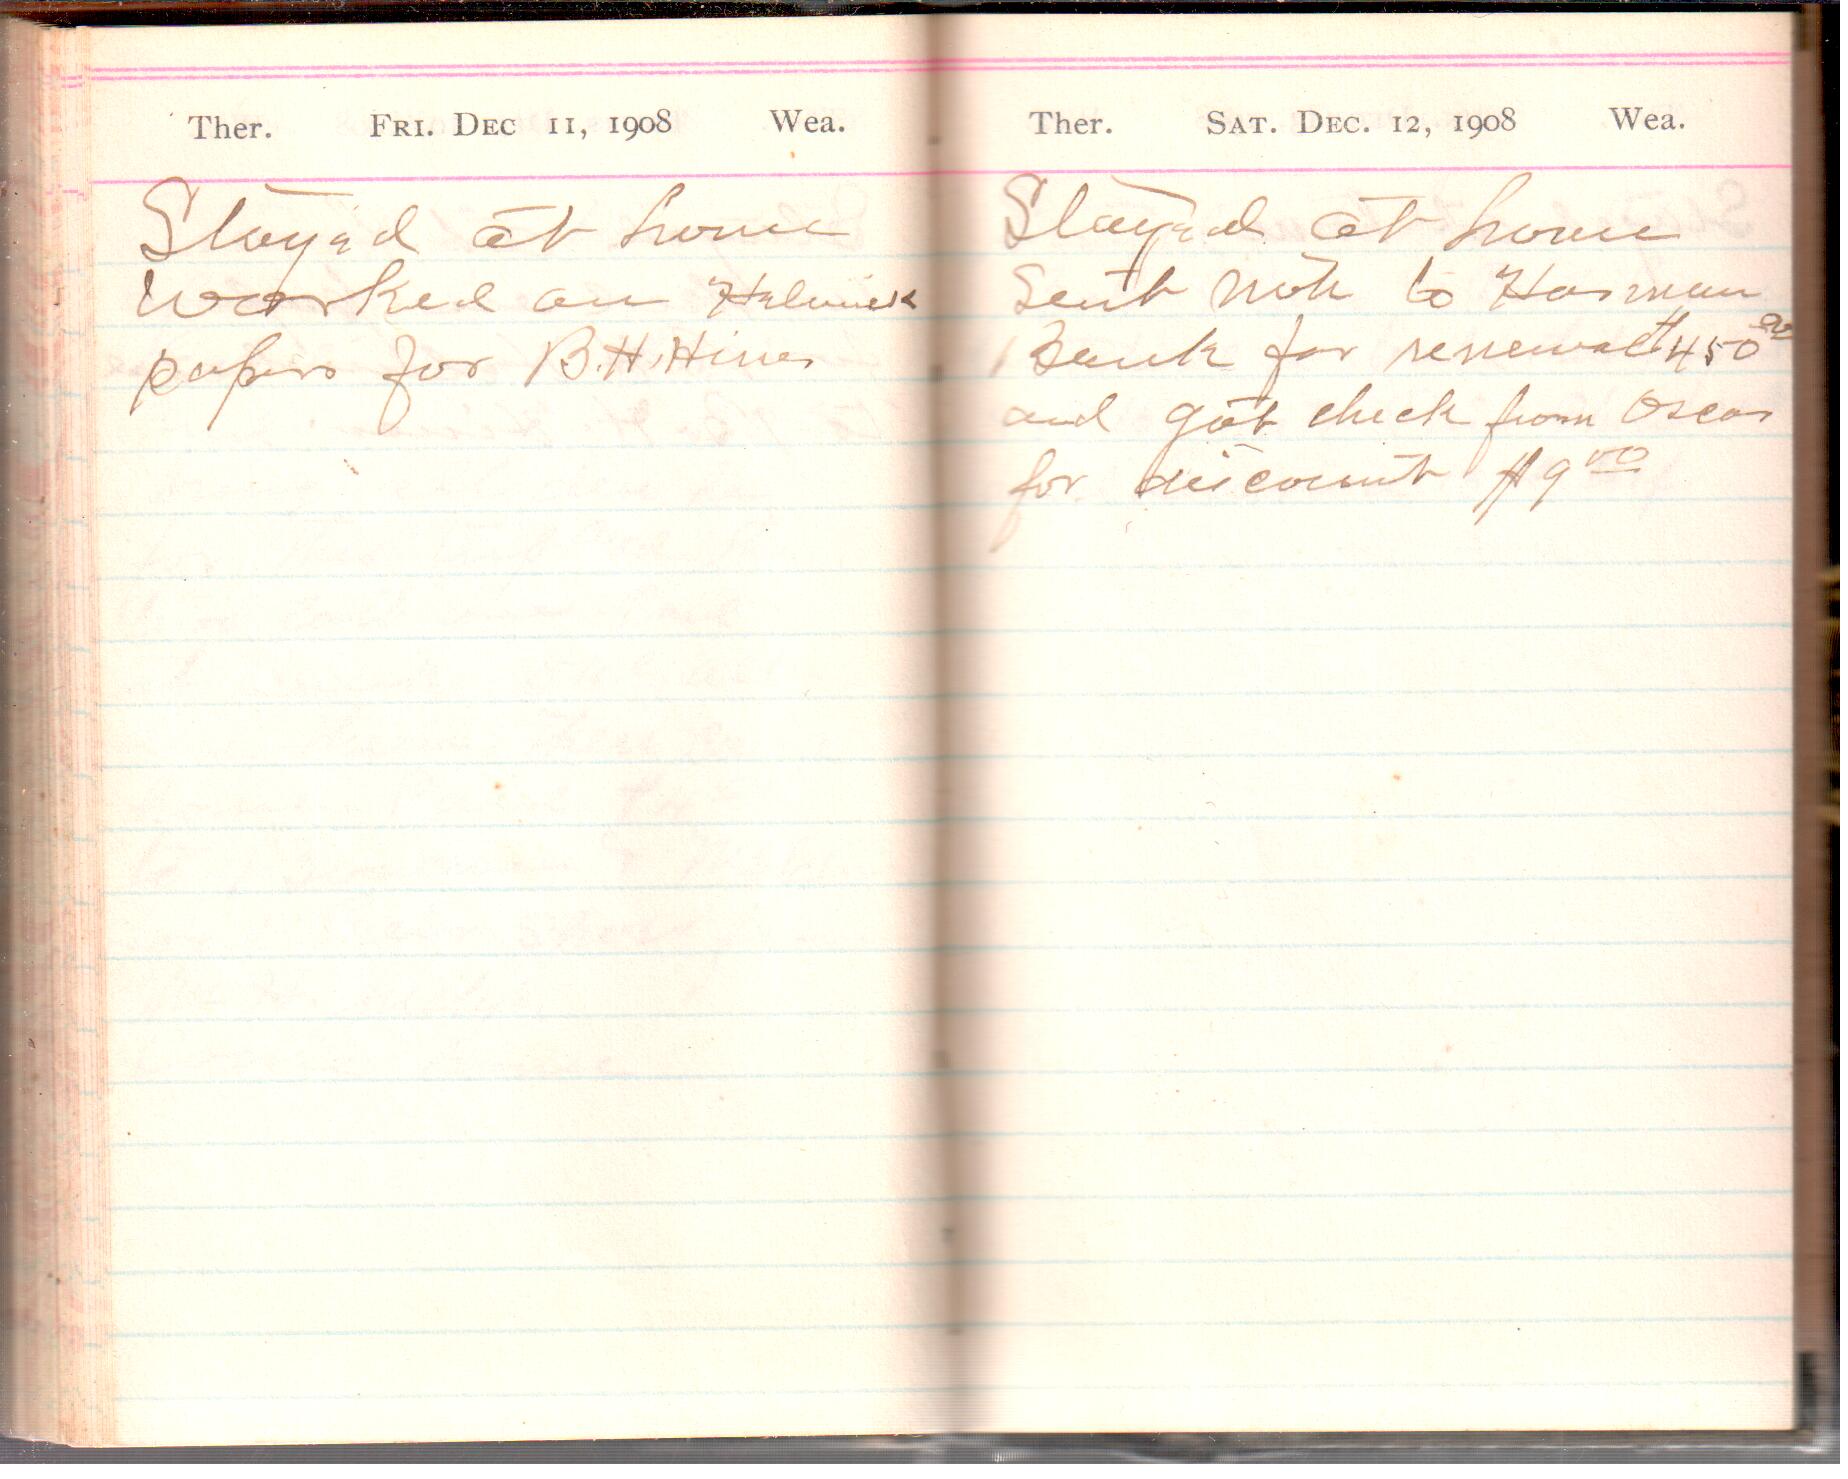 Ther. Fri. Dec 11, 1908 Wea.
Stayed at home
worked on Helmick
papers for B. H. Hines
Ther. Sat. Dec. 12, 1908 Wea.
Stayed at home
Sent note to Harman
Bank for renewal $450 00
and got check from Oscar
for discount $9 00